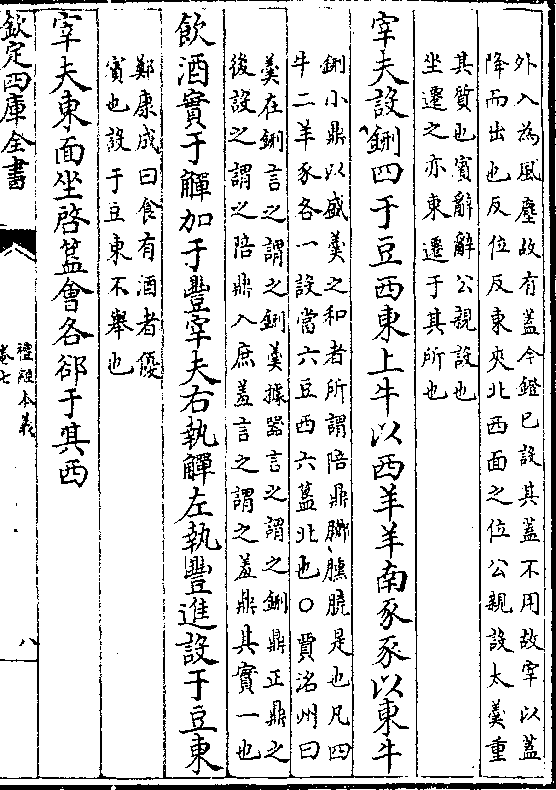 外入為風塵故有蓋今鐙已設其蓋不用故宰以蓋
降而出也反位反東夾北西面之位公親設太羮重
其質也賓辭辭公親設也
坐遷之亦東遷于其所也
宰夫設鉶四于豆西東上牛以西羊羊南豕豕以東牛
鉶小鼎以盛羮之和者所謂陪鼎膷臐膮是也凡四
牛二羊豕各一設當六豆西六簋北也○賈洺州曰
羮在鉶言之謂之鉶羮據器言之謂之鉶鼎正鼎之
後設之謂之陪鼎入庶羞言之謂之羞鼎其實一也
飲酒實于觶加于豐宰夫右執觶左執豐進設于豆東
鄭康成曰食有酒者優
賓也設于豆東不舉也
宰夫東面坐啓簋會各郤于其西
欽定四庫全書
禮經本義
卷七
八